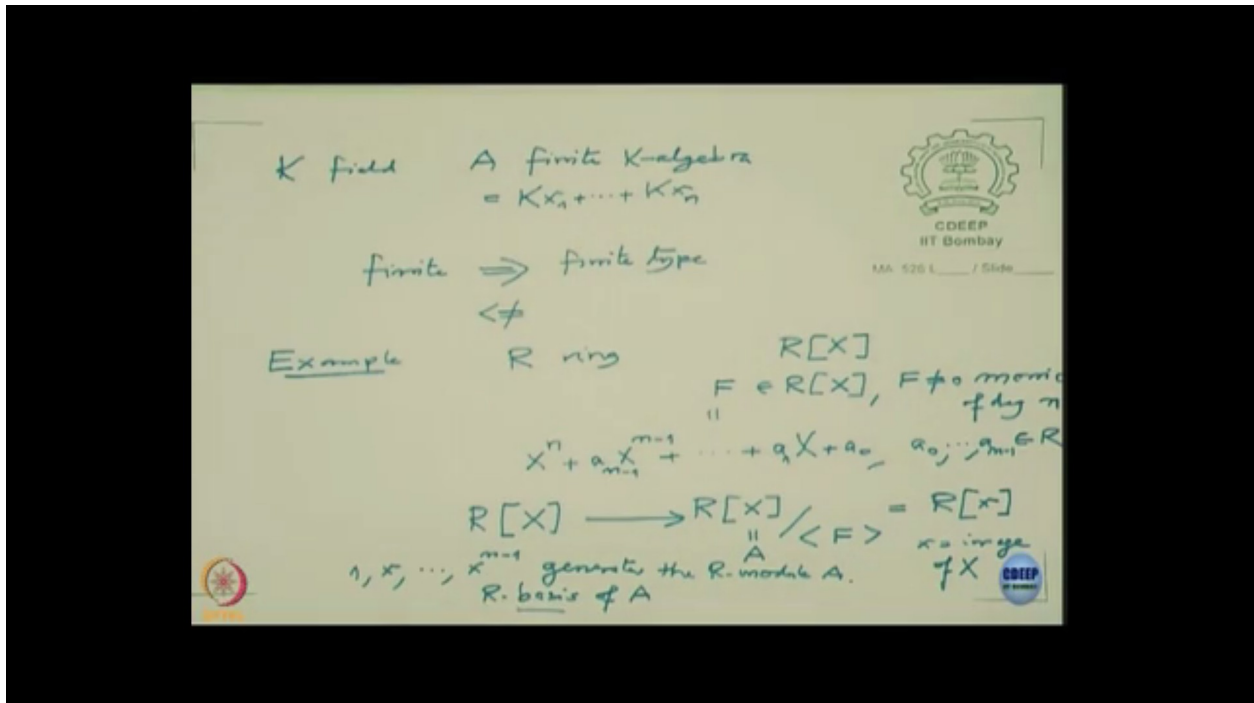 K field A finite K-algebra
= Kx₁ + ⋯ + Kxₙ
CDEEP
IIT Bombay
MA 526 L____ / Slide____
finite ⇒ finite type
⇍
Example R ring R[X]
F ∈ R[X], F ≠ 0 monic
of deg n
=
Xⁿ + aₙ₋₁Xⁿ⁻¹ + ⋯ + a₁X + a₀, a₀, ⋯, aₙ₋₁ ∈ R
R[X] ⟶ R[X]/<F> = R[x]
= A
x = image
of X
1, x, ⋯, xⁿ⁻¹ generates the R-module A.
R-basis of A
CDEEP